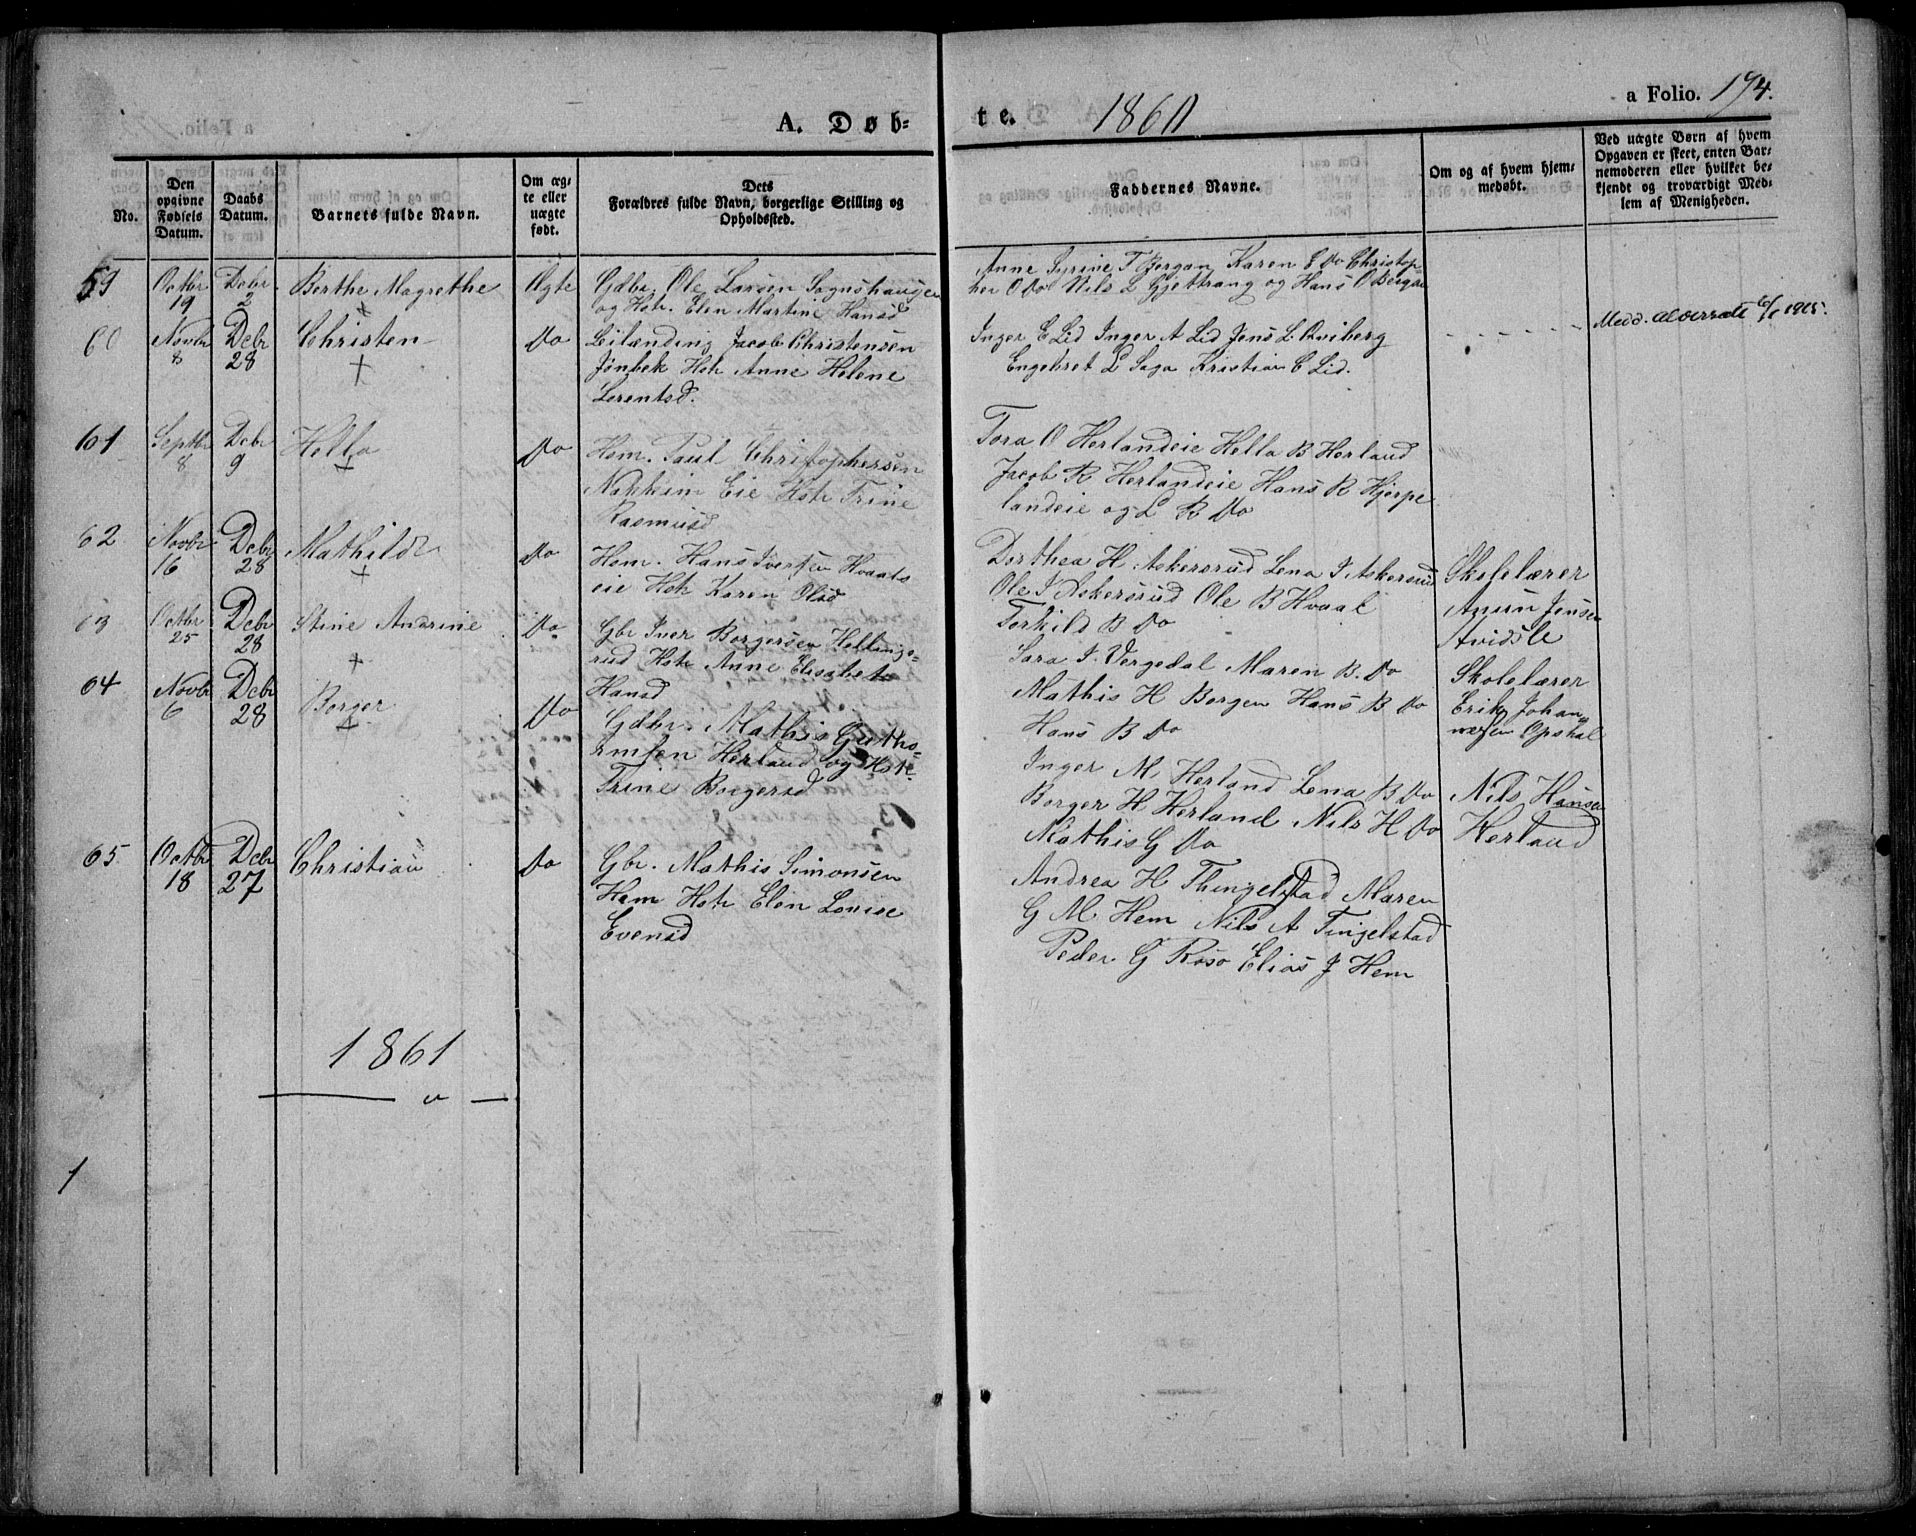 A. Døb-
te. 1860
a Folio. 194.
No.
Den opgivne Fødsels Datum.
Daabs Datum.
Barnets fulde Navn.
Om æg-
te eller
uægte
født.
Dets
Forældres fulde Navn, borgerlige Stilling og
Opholdssted.
Faddernes Navne.
Om og af hvem hjem-
medøbt.
Ved uægte Børn af hvem
Opgaven er skeet, enten Bar-
nemoderen eller hvilket be-
kjendt og troværdigt Med-
lem af Menigheden.
59 Octbr 19 Debr 2 Berthe Magrethe + Ægte
Gdbr. Ole Larsen Sognshaugen
og Hstr. Elen Martine Hansd
Anne Syrine T Bergan Karen E Do Christop-
her O Do Nils L Gjettrang og Hans O Bergan
60 Novbr 8 Debr 28 Christen + Do
Leilænding Jacob Christensen
Jønbek Hstr Anne Helene
Lorentsd.
Inger E Lid Inger A Lid Jens L Qviberg
Engebret L Saga Kristian E Lid.
Medd. 6/1 1905.
61 Septbr 8 Debr 9 Hella + Do
Hsm. Paul Christophersen
Nakkim Eie Hstr Trine
Rasmusd
Tora O Herlandeie Hella B Herland
Jacob R Herlandeie Hans R Hjerpe
landeie og L R Do
62 Novbr 16 Debr 28 Mathilde + Do
Hsm. Hans Iversen Hvaals
eie Hstr Karen Olsd
Dorthea H Askersrud Lena I Askersrud
Ole I Askersrud Ole B Hvaal
Torkild B Do
Skolelærer
Jensen
63 Octbr 25 Debr 28 Stine Andrine + Do
Gbr Iver Borgersen Hellings-
rud Hstr Anne Elisabeth
Hansd
Sara I. Vergedal Maren B. Do
Mathis H Borgen Hans B Do
Hans B Do
Skolelærer
Erik Johan
nesen Opshal
64 Novbr 6 Debr 28 Borger + Do
Gdbr. Mathis Gutho-
rmsen Herland og Hstr
Trine Borgersd
Inger M Herland Lena B Do
Borger H Herland Nils H Do
Mathis G Do
Nils Hansen
Herland
65 Octbr 18 Debr 27 Christian Do
Gbr. Mathis Simonsen
Hem Hstr Elen Lovise
Evensd
Andrea H Thingelstad Maren
G M Hem Nils A Tingelstad
Peder G Røso Elias J Hem
1861
1